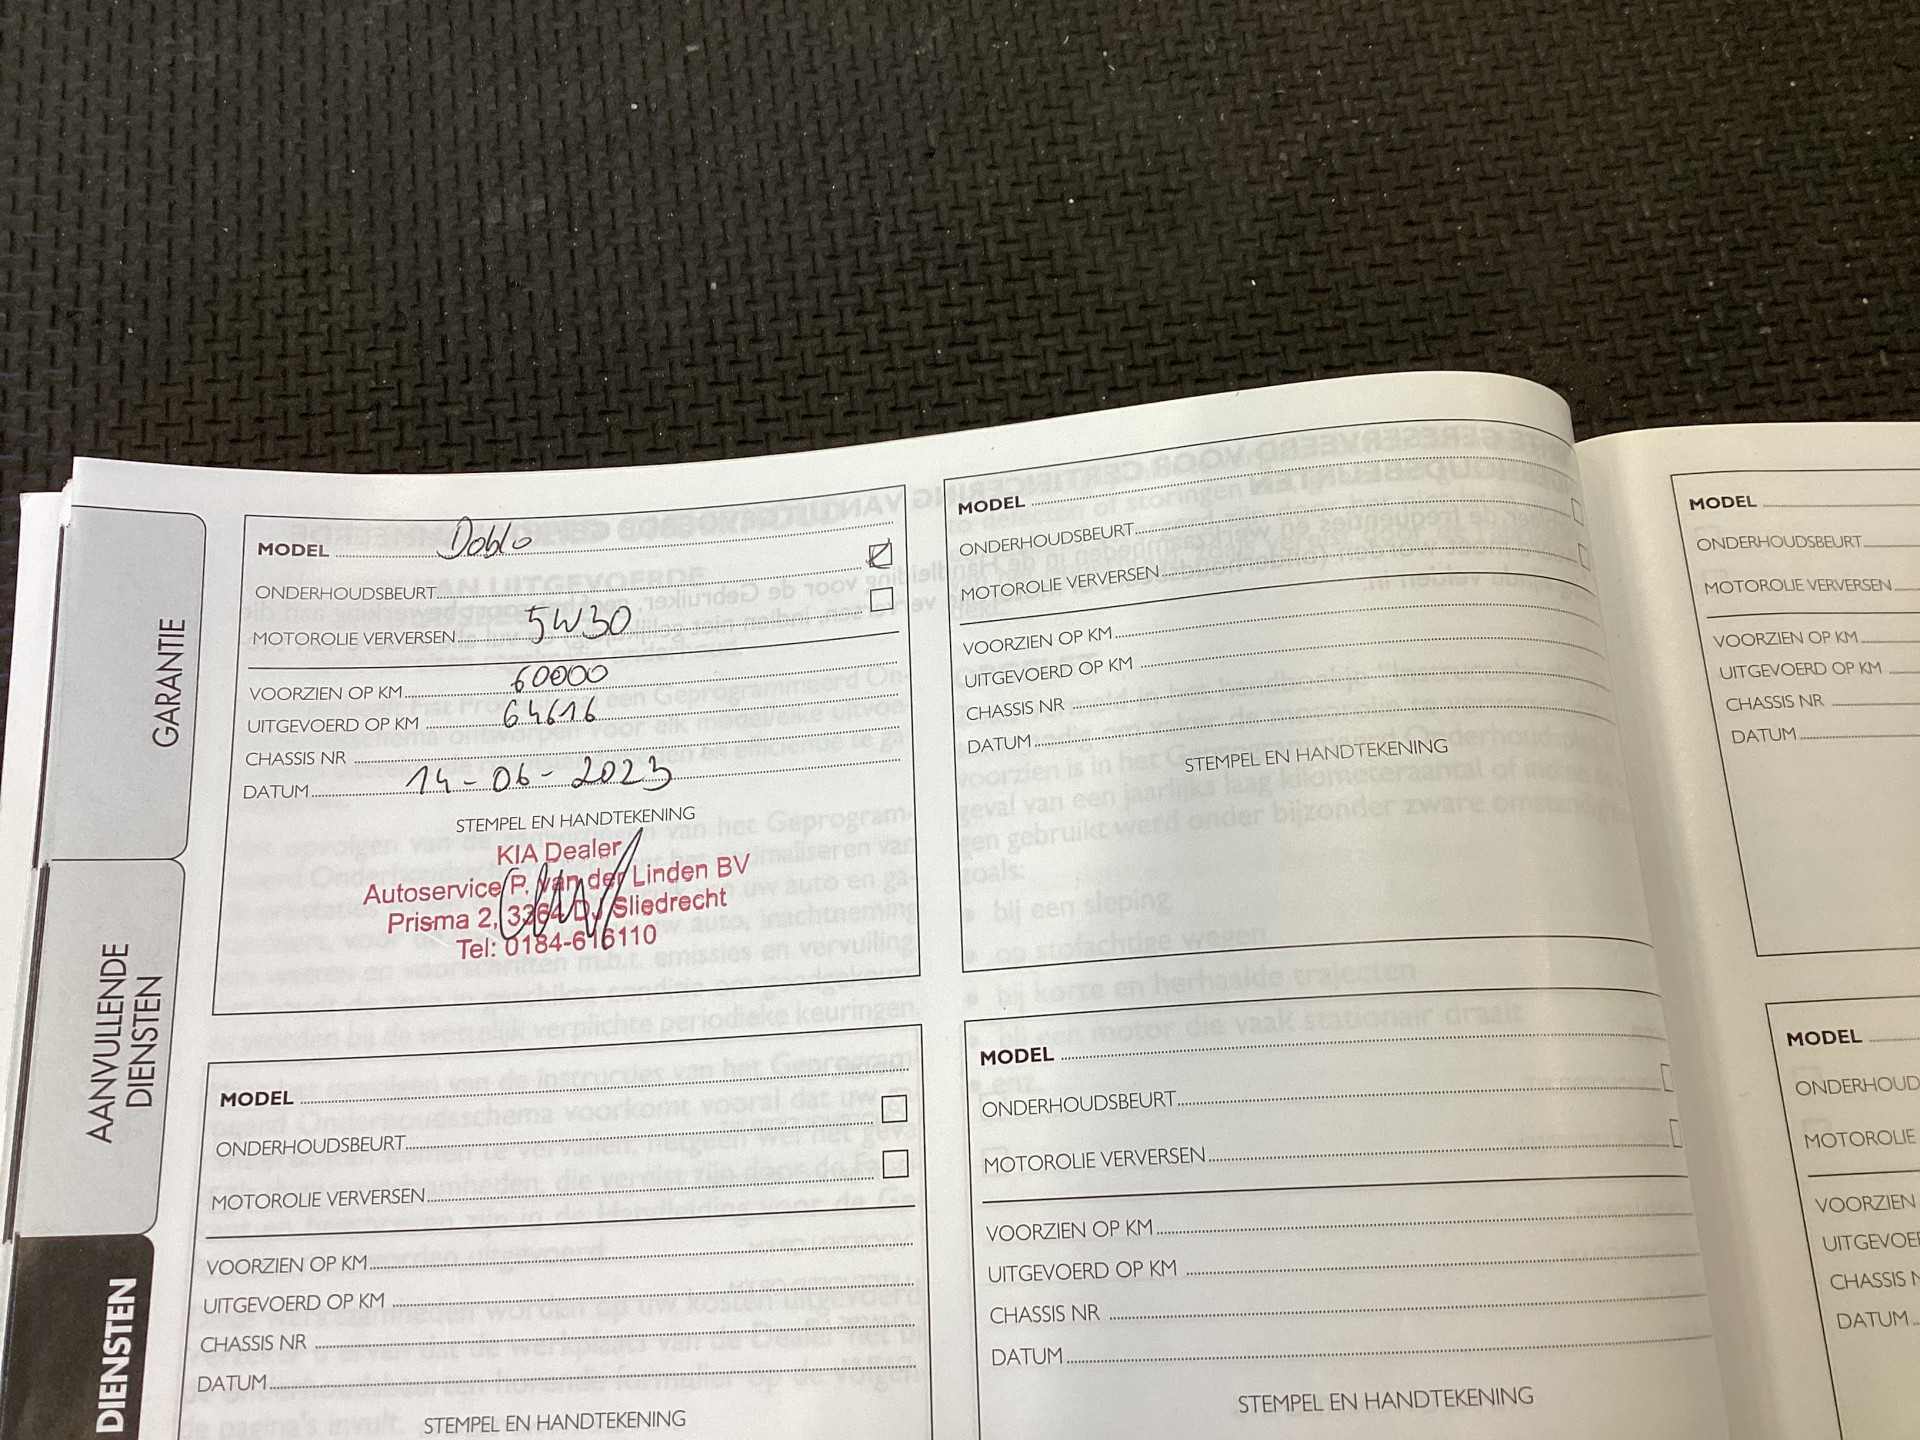 GARANTIE
AANVULLENDE
DIENSTEN
DIENSTEN
MODEL Doblo
ONDERHOUDSBEURT
MOTOROLIE VERVERSEN 5W30
VOORZIEN OP KM 60000
UITGEVOERD OP KM 64616
CHASSIS NR
DATUM 14-06-2023
STEMPEL EN HANDTEKENING
KIA Dealer
Autoservice P. van der Linden BV
Prisma 2, 3364 DJ Sliedrecht
Tel: 0184-616110
MODEL
ONDERHOUDSBEURT
MOTOROLIE VERVERSEN
VOORZIEN OP KM
UITGEVOERD OP KM
CHASSIS NR
DATUM
STEMPEL EN HANDTEKENING
MODEL
ONDERHOUDSBEURT
MOTOROLIE VERVERSEN
VOORZIEN OP KM
UITGEVOERD OP KM
CHASSIS NR
DATUM
STEMPEL EN HANDTEKENING
MODEL
ONDERHOUDSBEURT
MOTOROLIE VERVERSEN
VOORZIEN OP KM
UITGEVOERD OP KM
CHASSIS NR
DATUM
STEMPEL EN HANDTEKENING
MODEL
ONDERHOUDSBEURT
MOTOROLIE VERVERSEN
VOORZIEN OP KM
UITGEVOERD OP KM
CHASSIS NR
DATUM
MODEL
ONDERHOUD
MOTOROLIE
VOORZIEN
UITGEVOE
CHASSIS N
DATUM